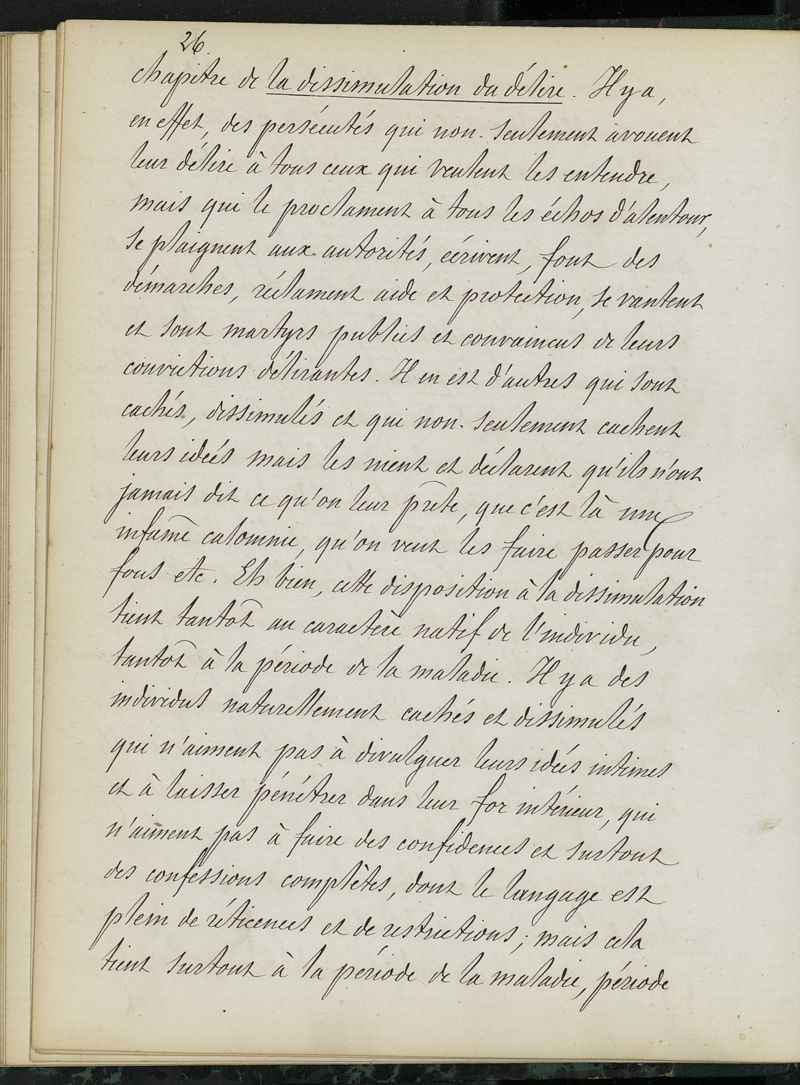 26.
chapitre de la dissimulation du délire. Il y a,
en effet, des persécutés qui non-seulement avouent
leur délire à tous ceux qui veulent les entendre,
mais qui le proclament à tous les échos d'alentour,
se plaignent aux autorités, écrivent, font des
démarches, réclament aide et protection, se vantent
et sont martyrs publics et convaincus de leurs
convictions délirantes. Il en est d'autres qui sont
cachés, dissimulés et qui non-seulement cachent
leurs idées mais les nient et déclarent qu'ils n'ont
jamais dit ce qu'on leur prête, que c'est là une
infâme calomnie, qu'on veut les faire passer pour
fous etc. Eh bien, cette disposition à la dissimulation
tient tantôt au caractère natif de l'individu,
tantôt à la période de la maladie. Il y a des
individus naturellement cachés et dissimulés
qui n'aiment pas à divulguer leurs idées intimes
et à laisser pénétrer dans leur for intérieur, qui
n'aiment pas à faire des confidences et surtout
des confessions complètes, dont le langage est
plein de réticences et de restrictions; mais cela
tient surtout à la période de la maladie, période